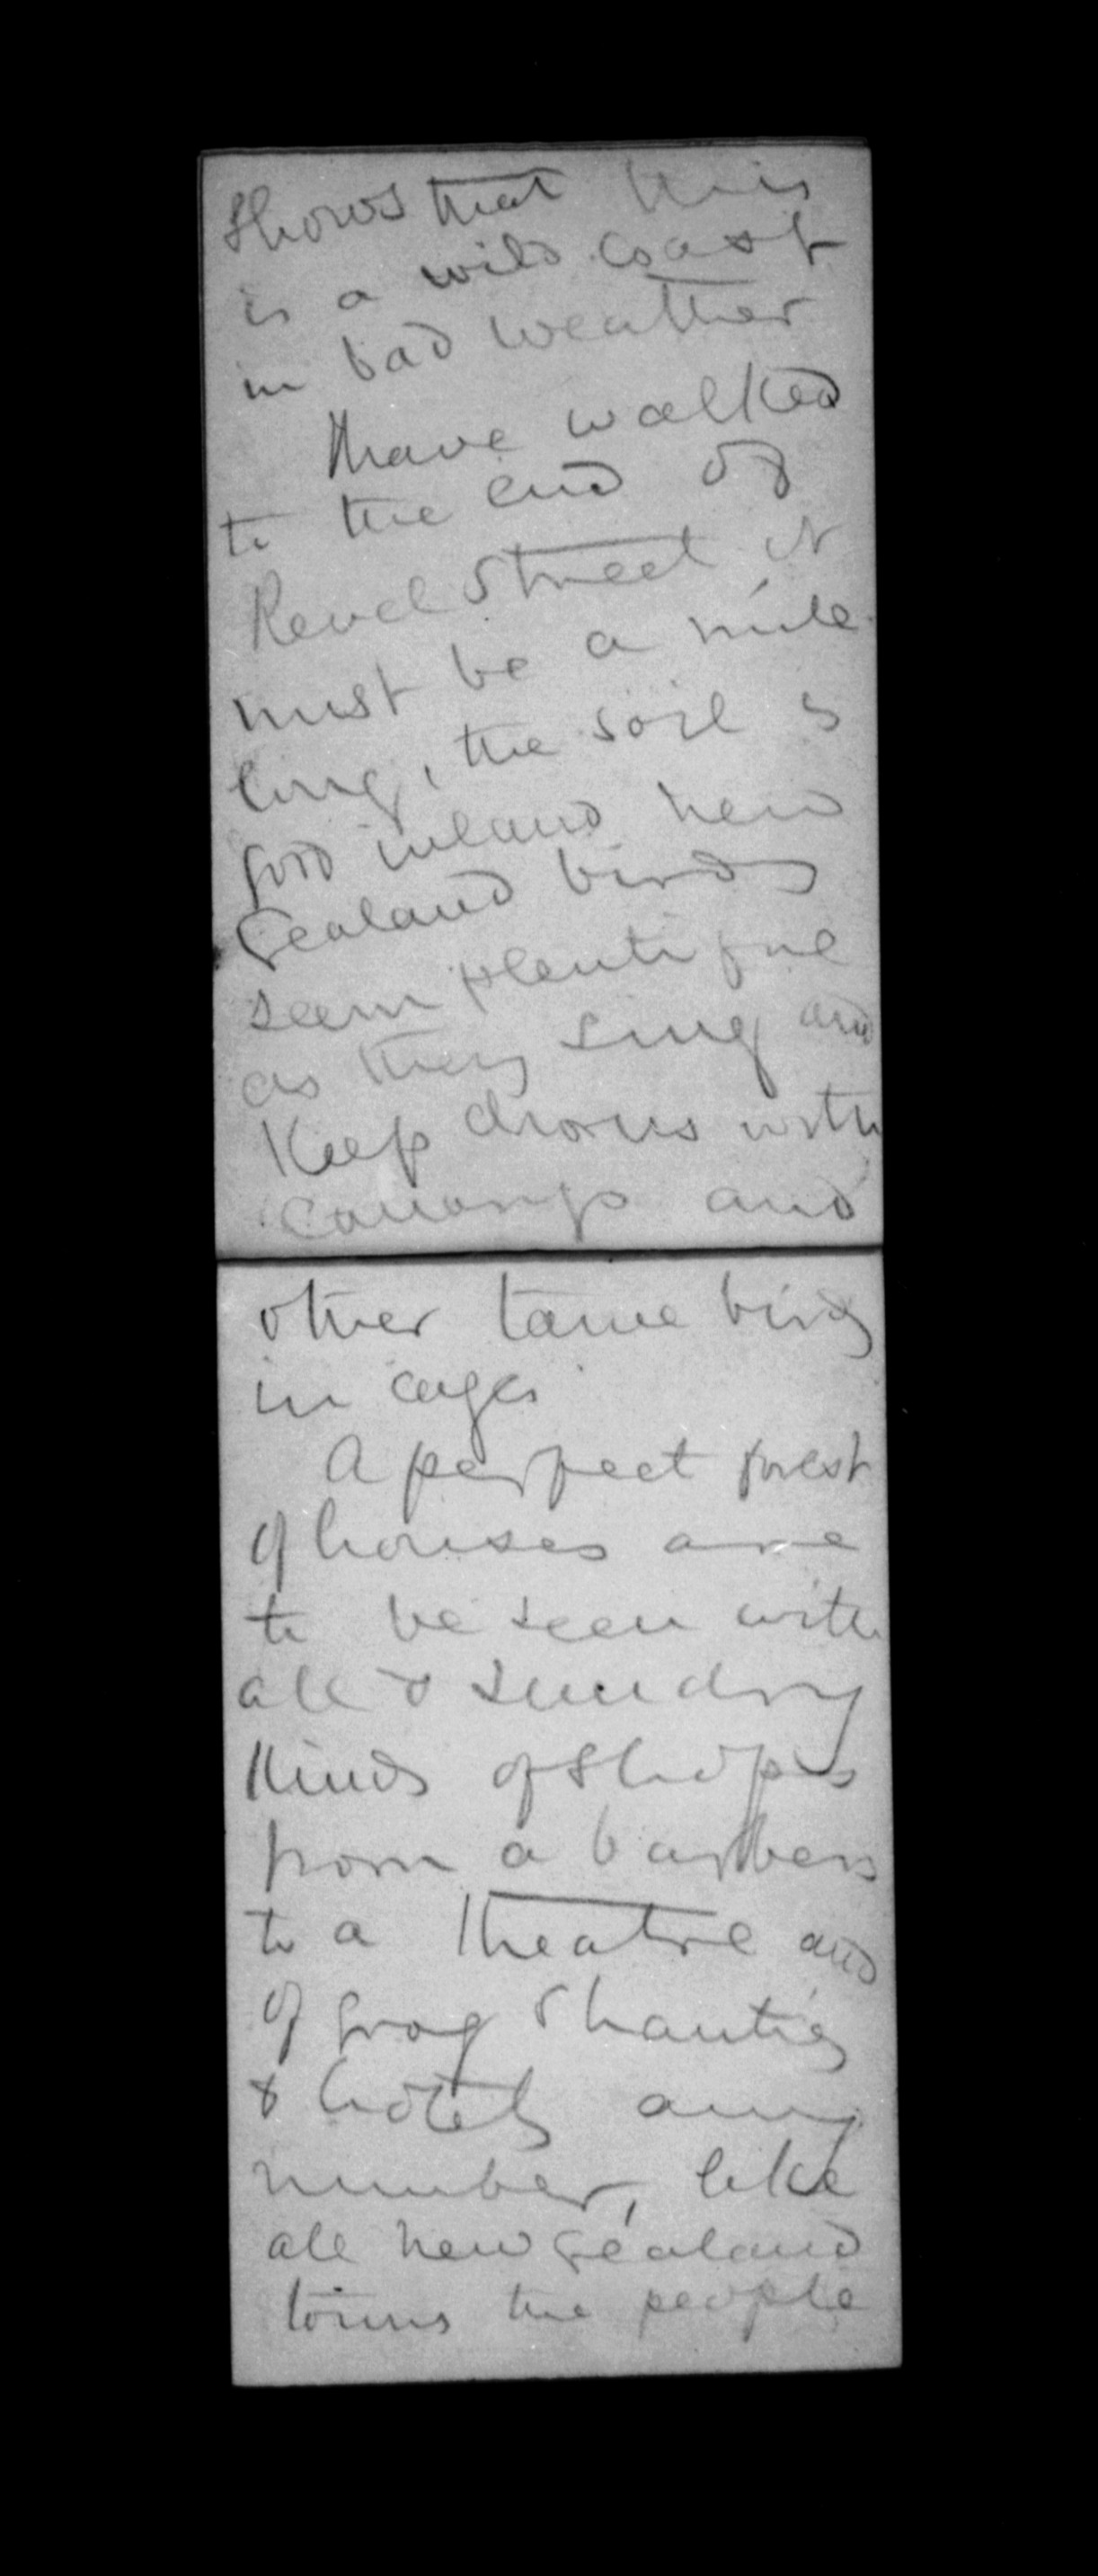 shows that this
is a wild coast
in bad weather
I have walked
to the end of
Revel Street it
must be a mile
long, the soil is
good inland new
Zealand birds
seem plentiful
as they sing and
Keep chorus with
and
other tame birds
in cages
A perfect forest
of houses are
to be seen with
all & sundry
Kinds of shops
from a barbers
to a theatre and
of grog shanties
& hotels any
number, like
all new Zealand
towns the people